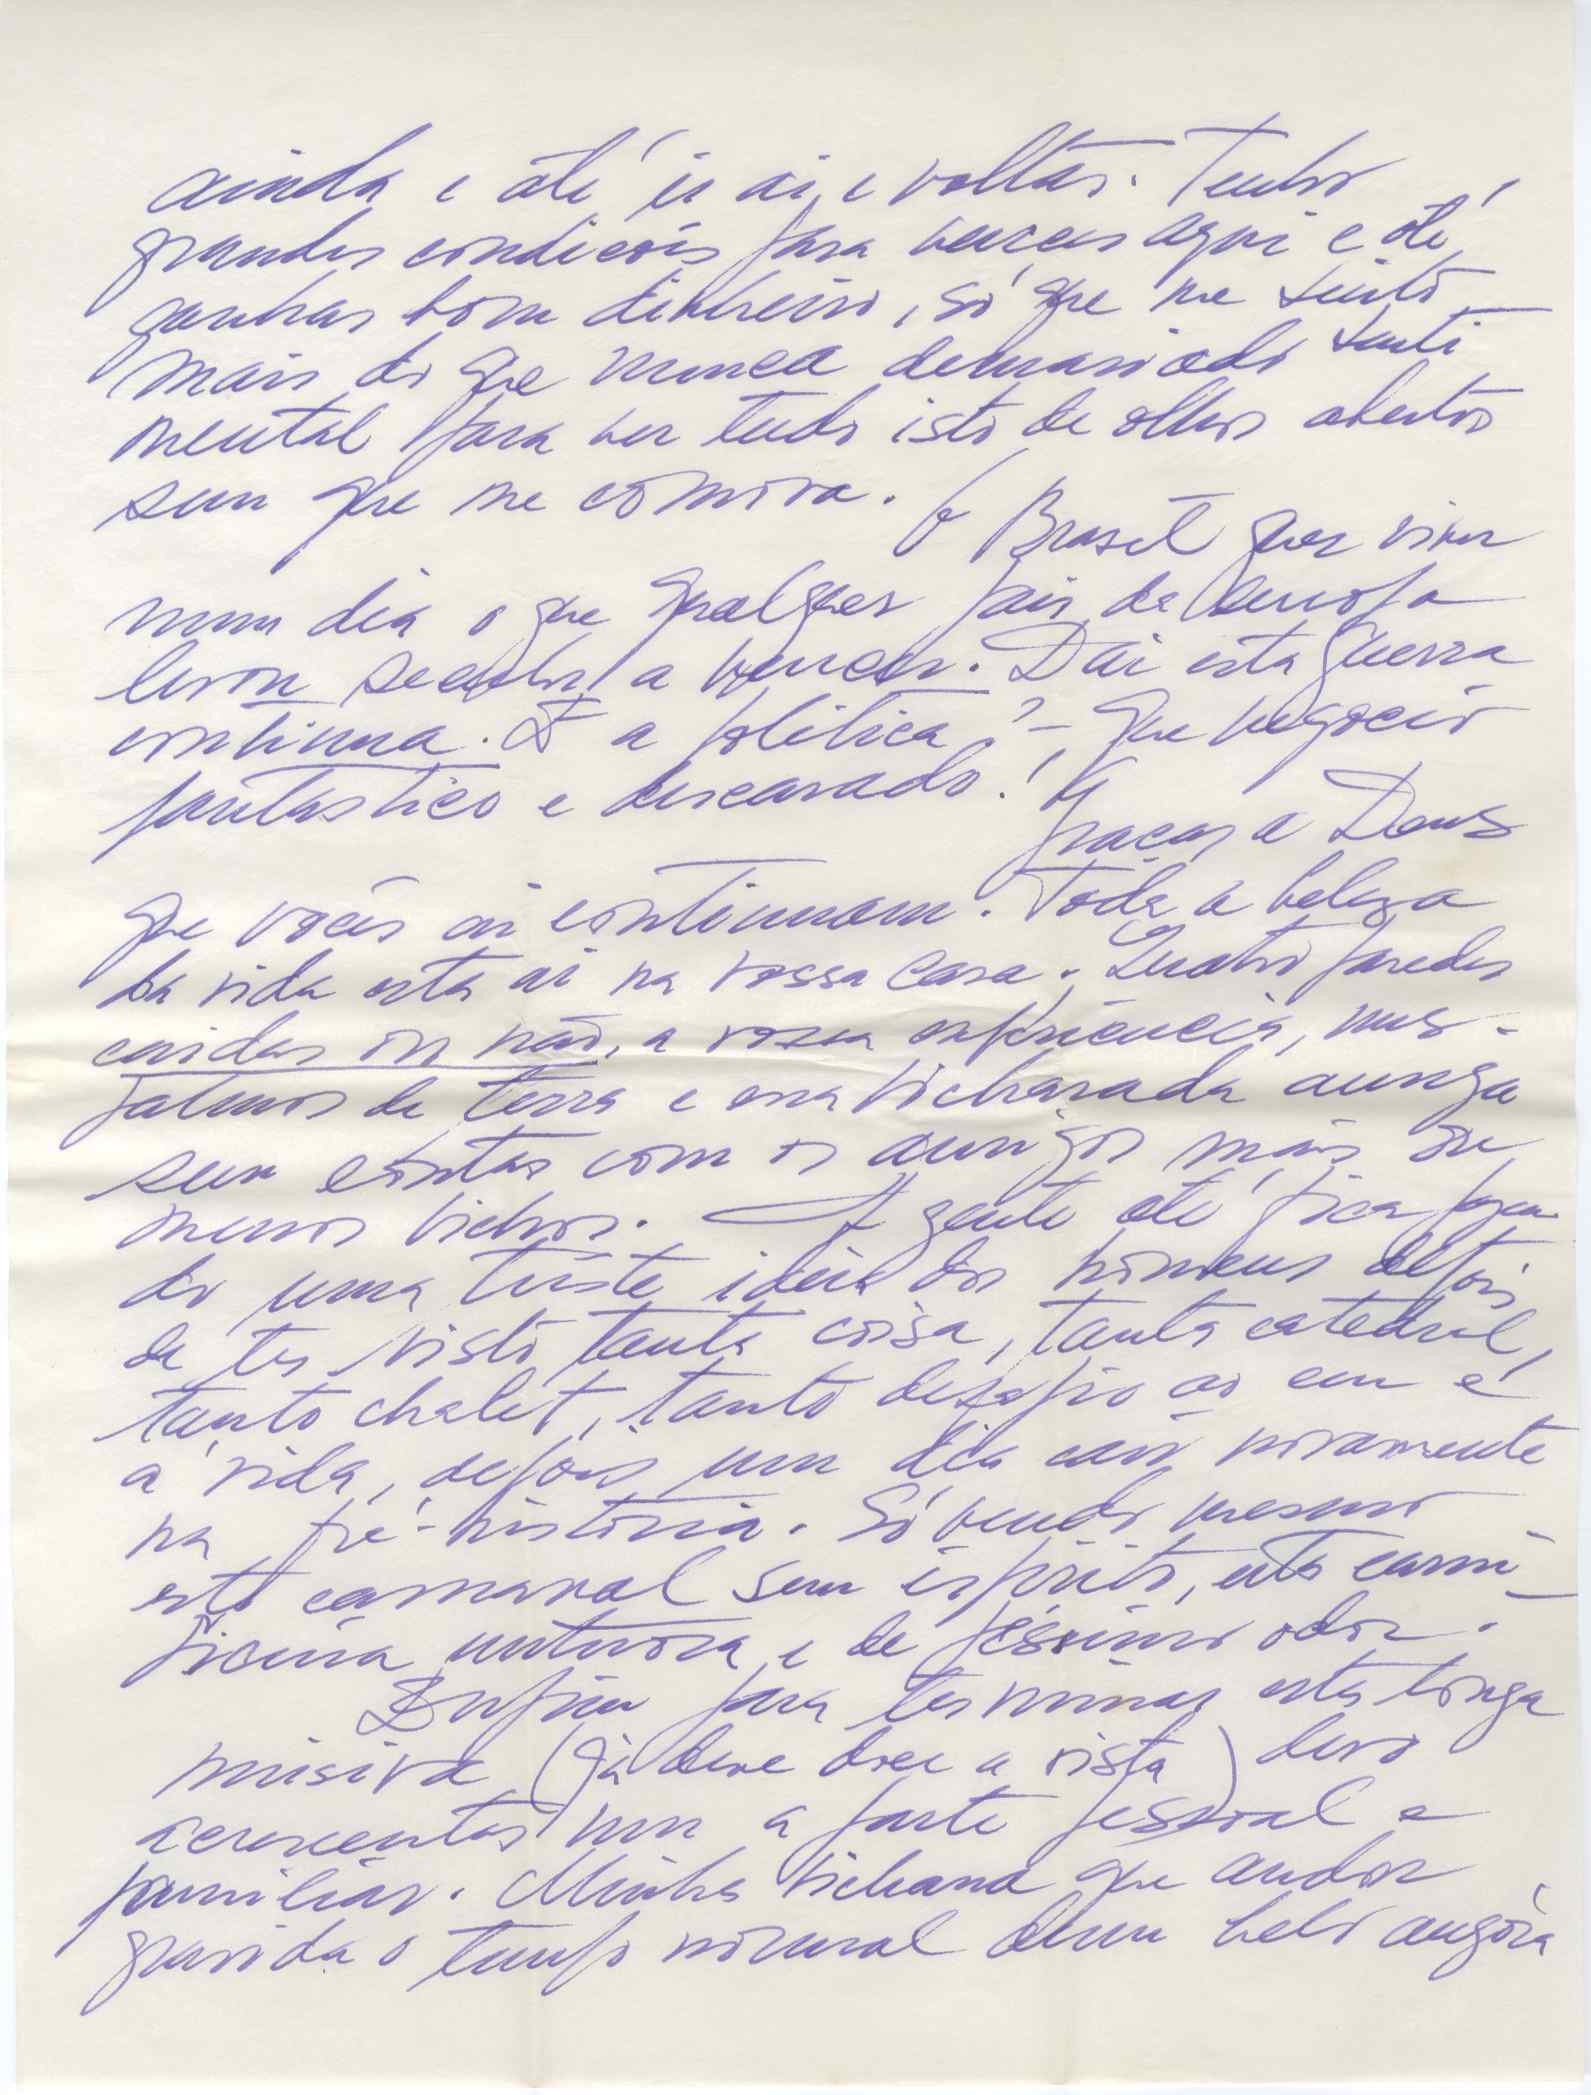 ainda e até ir aí e voltar. Tenho
grandes condicois para vencer aqui e até
ganhar bom dinheiro, só que me sinto
mais do que nunca demasiado senti
mental para ver tudo isto de olhos abertos
sem que me comova. O Brasil quer viver
num dia o que qualquer pais da Europa
levou seculos a vencer. Dai esta guerra
continua. E a politica? – Que negocio
fantastico e descarado! Graças a Deus
que vocês aí continuam. Toda a beleza
da vida esta aí na vossa casa. Quatro paredes
caidas ou não, a vossa experiencia, uns
palmos de terra e essa bicharada amiga
sem contar com os amigos mais ou
menos bichos. A gente até fica fazen
do uma triste ideia dos homens depois
de ter visto tanta coisa, tanta catedral,
tanto chalet, tanto desafio ao ceu e
a vida, depois um dia cair novamente
na pré-historia. Só vendo mesmo
este carnaval sem espirito, esta carni
ficina untuosa e de péssimo odor.
Enfim para terminar esta longa
missiva (já deve doer a vista) devo
acrescentar um a parte pessoal e
familiar. Minha bichana que andou
gravida o tempo normal deum belo angóra